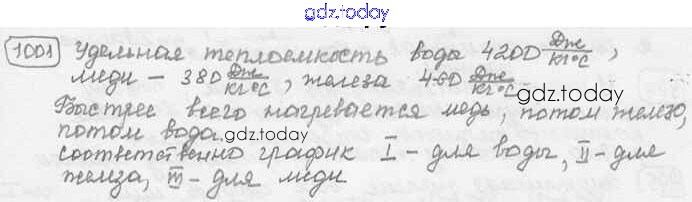 gdz.today
1001 Удельная теплоемкость вода 4200 Дж/кг°С,
меди – 380 Дж/кг°С, железа 460 Дж/кг°С
gdz.today
Быстрее всего нагревается медь, потом железо,
потом вода.
gdz.today
соответственно график I – для воды, II – для
железа, III – для меди